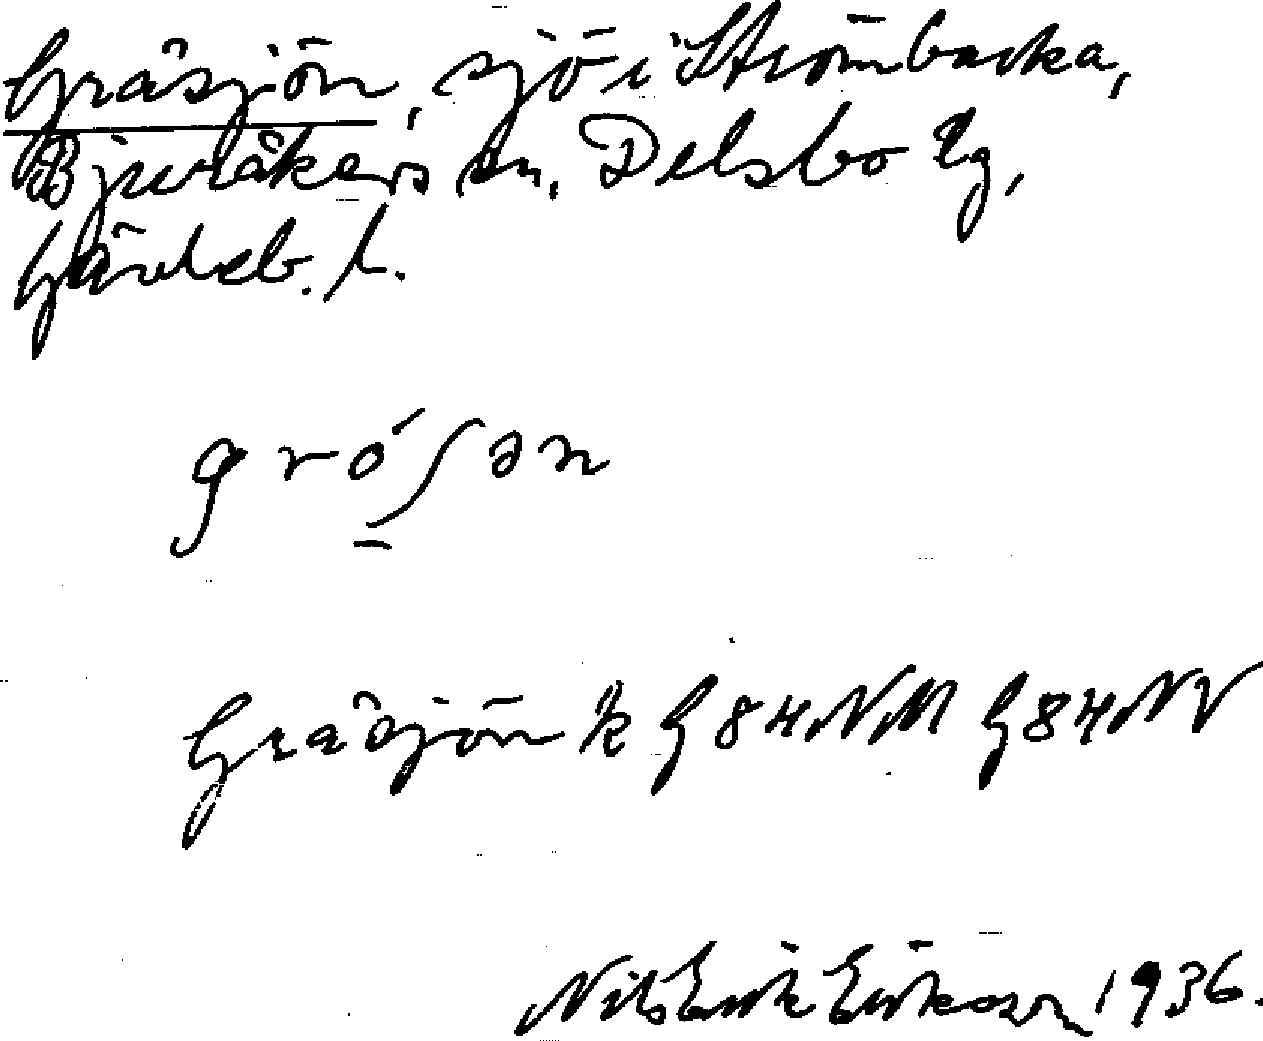 Gråsjön, sjö i Strömbacka,
Bjuråkers sn, Delsbo tg,
Gävleb. l.
gró̱ʃən
Gråsjön k G 84 NM G 84 NV
Nils Erik Eriksson 1936.